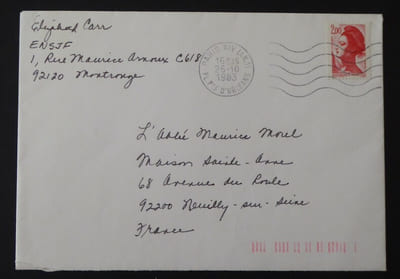 Elizabeth Carr
ENSJF
1, Rue Maurice Arnoux C618
92120 Montrouge
PARIS XIV
25-10
1983
PL. D'ORLEANS
2,00
L'Abbé Maurice Morel
Maison Sainte-Anne
68 Avenue du Roule
92200 Neuilly-sur-Seine
France